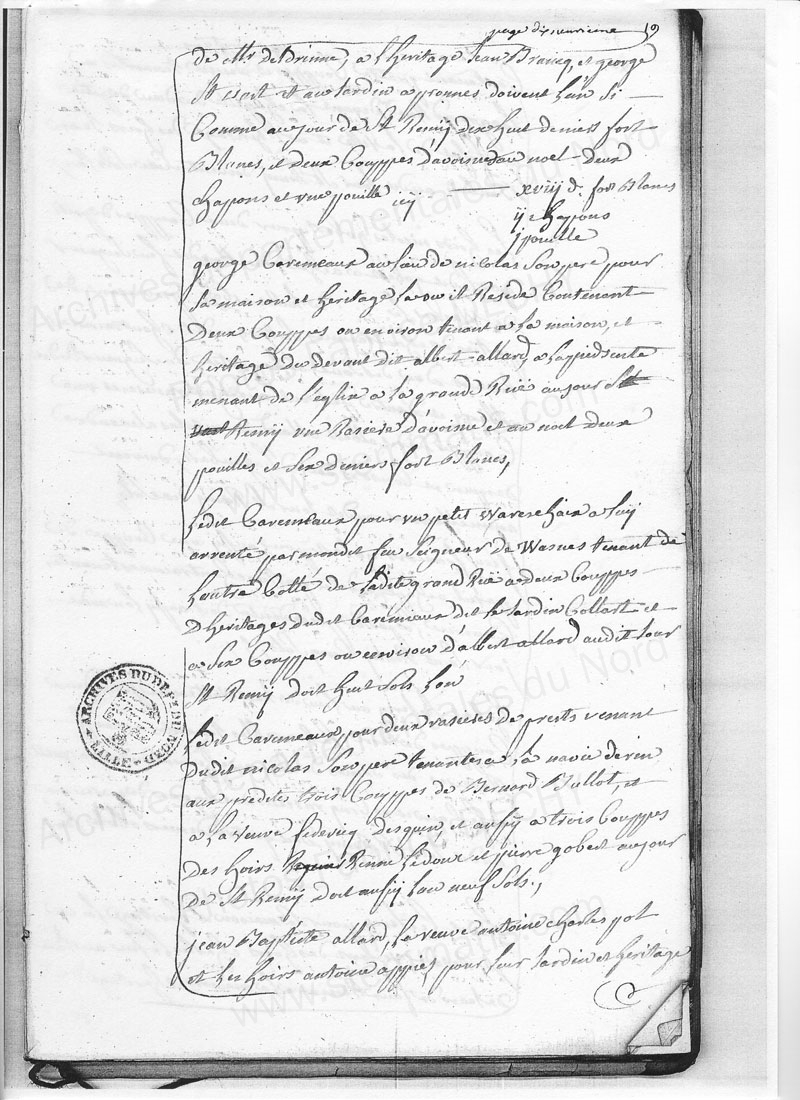 page dixneuvieme 19
de Mr de Brinne, a l'heritage Jean Bracq, et george
St vart et au Jardin a pronnes doivent l'un Si
Comme au jour de St Remÿ dix huit deniers fort
Blancs, et deux Couppes d'avoine au noel deux
chapons et une poulle icÿ —— xviij d. fort Blancs
ij chapons
j poulle
george Caremeaux au lieu de nicolas Son pere pour
Sa maison et heritage la ou il Reside Contenant
Deux Couppes ou environ tenant a la maison, et
heritage du devant dit albert allard, a la piedsente
menant de l'eglise a la grande Ruë au jour St
Remÿ une Rasiere d'avoine et au noel deux
poulles et Six deniers fort Blancs,
Ledit Caremeaux pour un petit Wareschaix a luÿ
arrenté par mondit feu Seigneur de Wasnes tenant de
l'outre Cotté de ladite grand Ruë a deux Couppes
D'heritages dudit Caremiaux dit le Jardin Collart et
a Six Couppes ou environ d'albert allard audit Jour
St Remÿ doit huit Sols l'an
Ledit Caremeaux pour deux rasieres de prets venant
Dudit nicolas Son pere tenantes a la navie derin
aux predites trois Couppes de Bernard Bullot, et
a la veuve federicq desquin, et aussÿ a trois Couppes
Des hoirs Renne Ledoux et pierre gobert au jour
De St Remÿ doit aussÿ l'an neuf Sols.,
jean Baptiste allard, la veuve antoine charles pot
et les hoirs antoine appiés pour leur Jardin et heritage
ARCHIVES DU DEPT DU NORD
LILLE